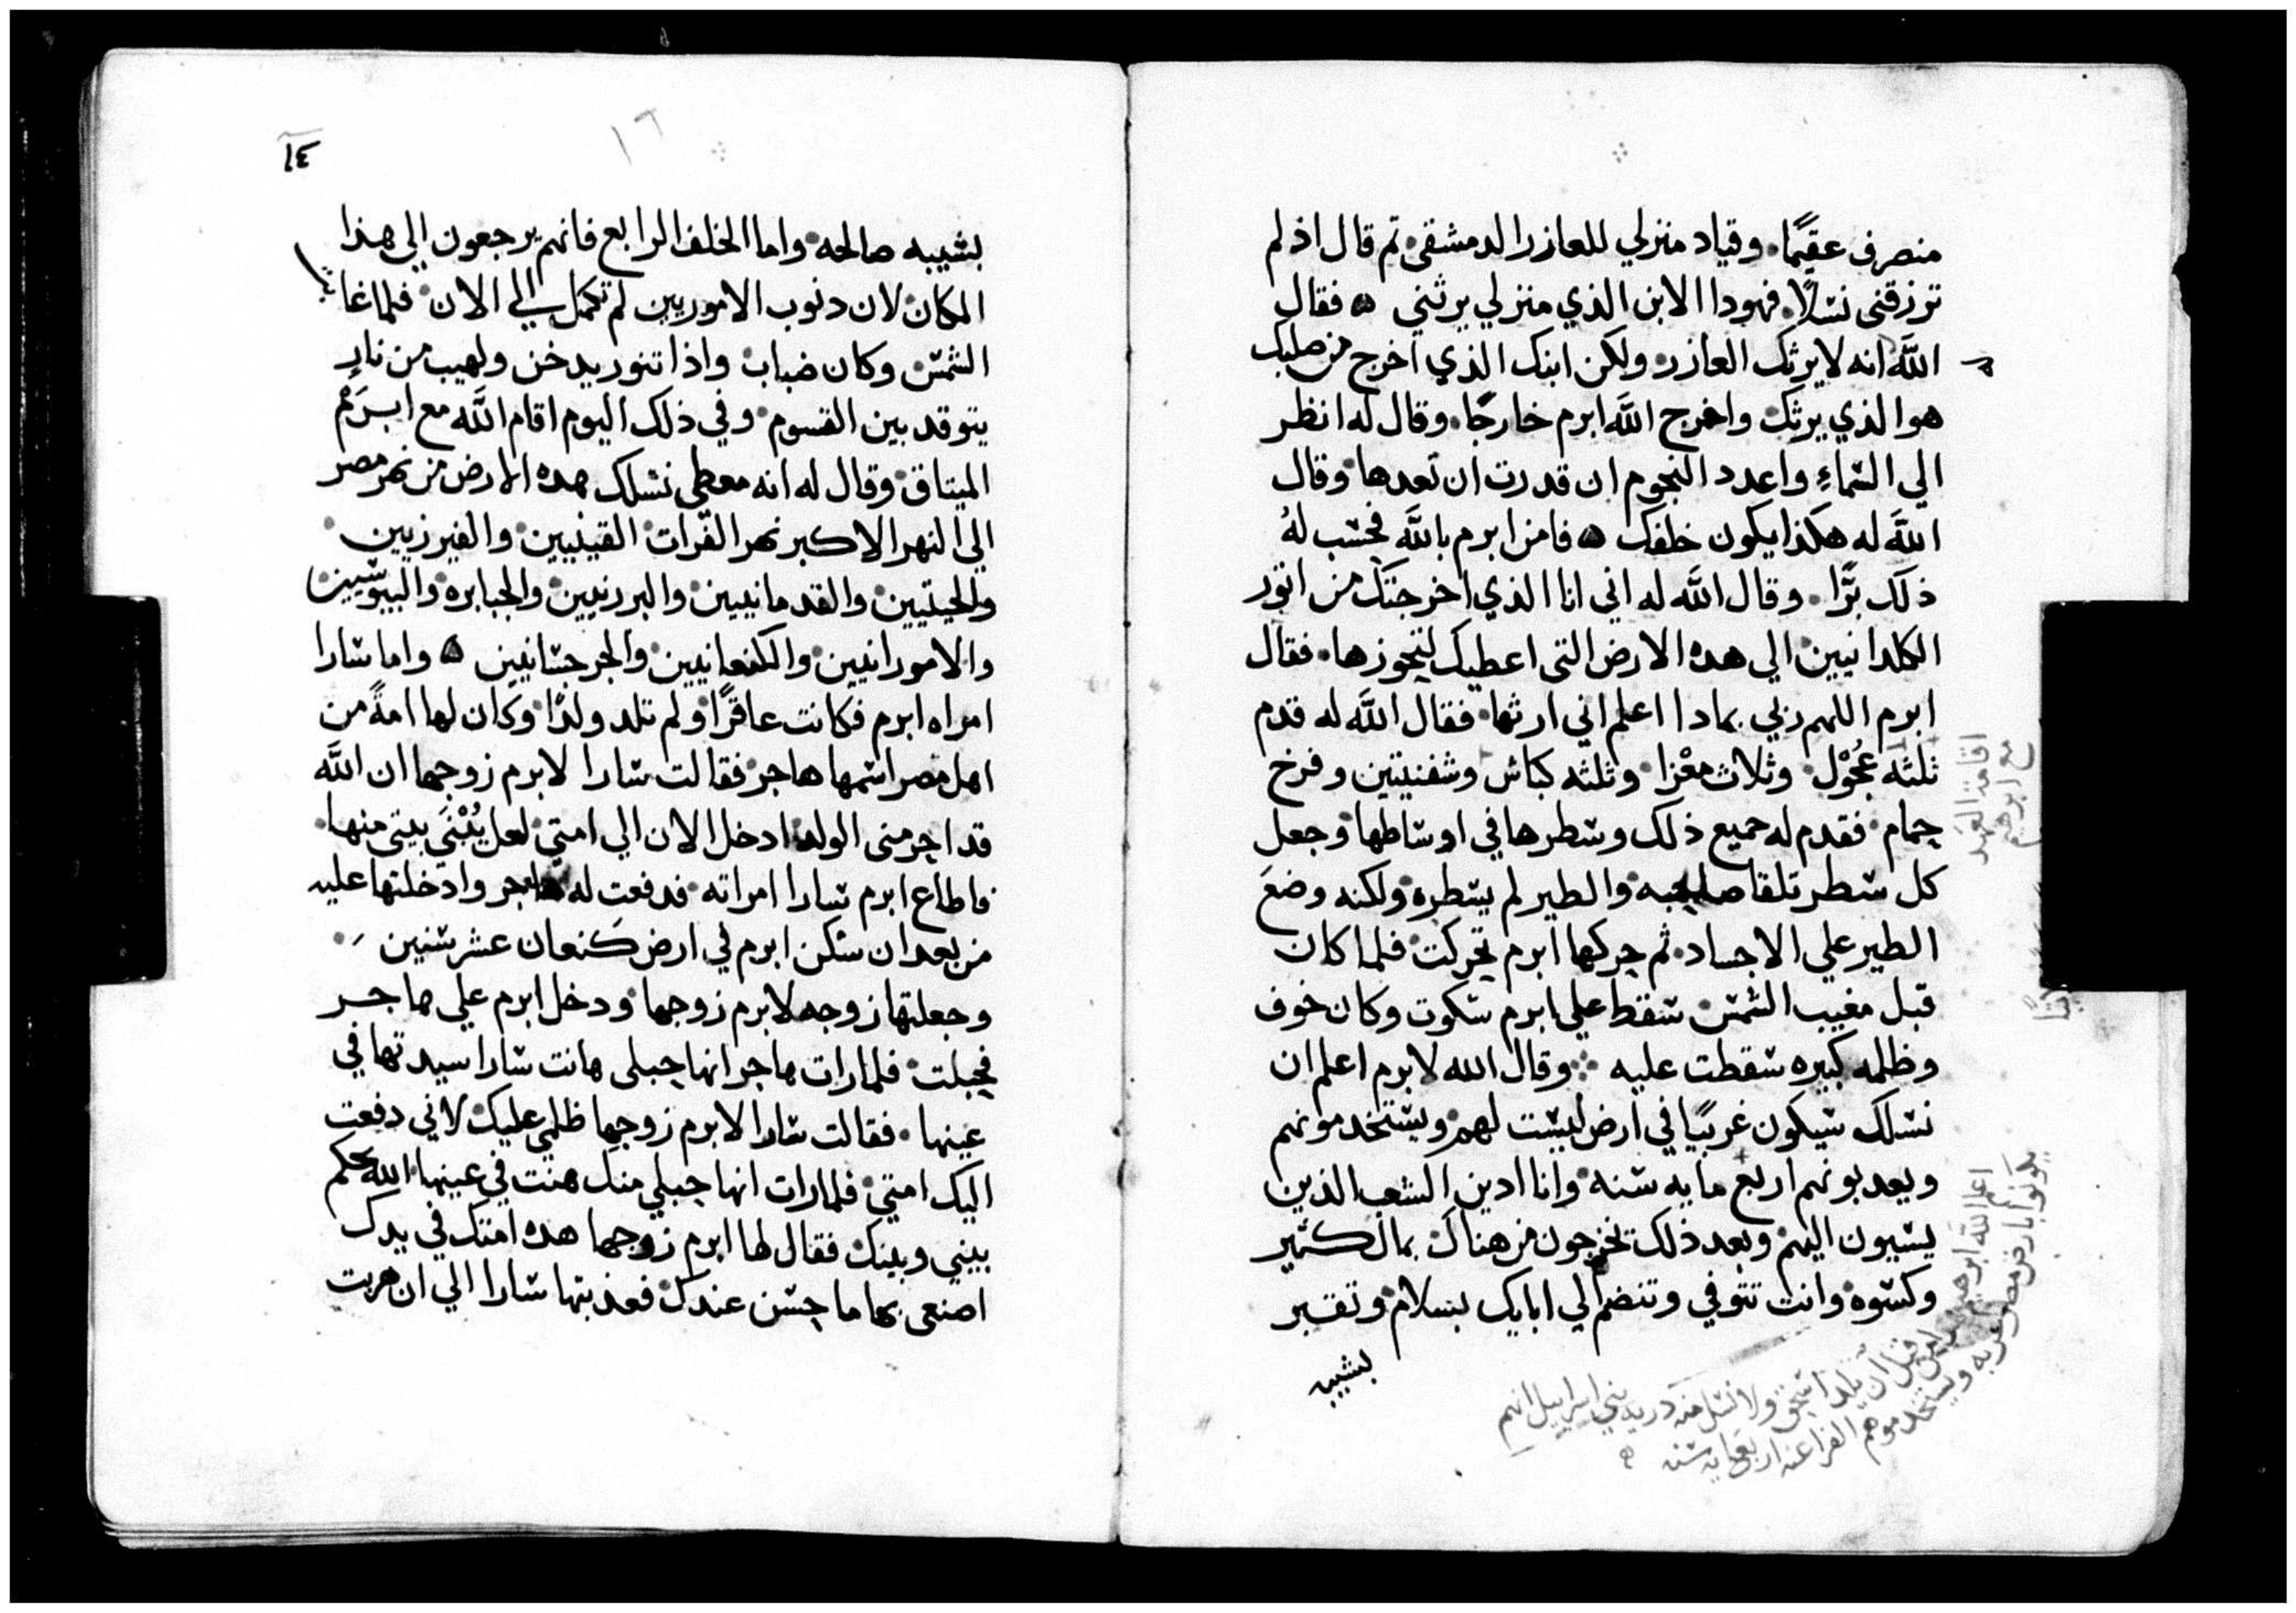 منصرف عقيمًا. وقياد منزلي للعازر الدمشقي. تم قال اذ لم
ترزقني نسلًا. فهودا الابن الذي منزلي يرثني ۞ فقال
اللَّه انه لا يرثك العازر. ولكن ابنك الذي اخرج من صلبك
هو الذي يرثك. واخرج اللَّه ابرم خارجًا. وقال له انظر
الي السماءِ واعدد النجوم ان قدرت ان تعدها. وقال
اللَّه له هكذا يكون خلفك ۞ فامن ابرم باللَّه فحسب لهُ
ذلك برًّا. وقال اللَّه له اني انا الذي اخرجتك من اتور
الكلدانيين. الي هده الارض التي اعطيك لتحوزها. فقال
ابرم اللهم ربي بمادا اعلم اني ارثها. فقال اللَّه له قدم
ثلثه عُجُوْل. وثلاث معْزا. وثلثه كباش وشفنيتين وفرخ
حمام. فقدم له جميع ذلك وشطرها في اوساطها. وجعل
كل شطر تلقا صاحبه. والطير لم يشطره. ولكنه وضعَ
الطير علي الاجساد. ثم حركها ابرم تحركت. فلما كان
قبل مغيب الشمس. سقط علي ابرم سكوت وكان خوف
وظلمه كبيره سقطت عليه ⁘ وقال الله لابرم اعلم ان
نسلك سيكون غريبًا في ارض ليست لهم. ويستخدمونهم
ويعدبونهم اربع مايه سنه. وانا ادين الشعب الذين
يسيرون اليهم. وبعد ذلك تخرجون من هناك بمال كثير
وكسوه. وانت تتوفي وتنضم الي ابايك بسلام. وتقبر
بشيبه
اقامة العهد
مع ابرهيم
اعلم الله ابرهيم
قبل ان يلد اسحق ولا نسل منه دريه بني اسراييل انهم
يكونوا بارض مصر غربه ويستخدموهم الفراعنه اربعمايه سنه
١٤
١٦
بشيبه صالحه. واما الخلف الرابع فانهم يرجعون الي هذا
المكان. لان دنوب الاموريين لم تكمل الي الان. فلما غابـ
الشمس. وكان ضباب. واذا تنور يدخن ولهيب من نارٍ
يتوقد بين القسوم. وفي ذلك اليوم اقام اللَّه مع ابرَم
الميتاق. وقال له انه معطي نسلك هده الارض من نهر مصر
الي النهر الاكبر نهر الفرات. القينيين. والفيرزيين.
والحيتيين. والقدمانيين. والبرزيين. والجبابره. واليبوسيين.
والامورانيين. والكنعانيين. والجرجسانيين ۞ واما سارا
امراه ابرم فكانت عاقرًا. ولم تلد ولدًا. وكان لها امةً من
اهل مصر اسمها هاجر. فقالت سارا لابرم زوجها ان اللَّه
قد احرمني الولد. ادخل الان الي امتي. لعل يُبْنَي بيتي منها.
فاطاع ابرم سارا امراته. فدفعت له هاجر وادخلتها عليه
من بعد ان سكن ابرم في ارض كنعان عشر سنين.
وجعلتها زوجه لابرم زوجها. ودخل ابرم علي هاجر
فحبلت. فلما رات هاجر انها حبلي هانت سارا سيدتها في
عينها. فقالت سارا لابرم زوجها ظلمي عليك. لاني دفعت
اليك امتي. فلما رات انها حبلي منك هنت في عينها. الله يحكم
بيني وبينك. فقال لها ابرم زوجها هده امتك في يدك
اصنعي بها ما حسن عندك. فعذبتها سارا الي ان هربت